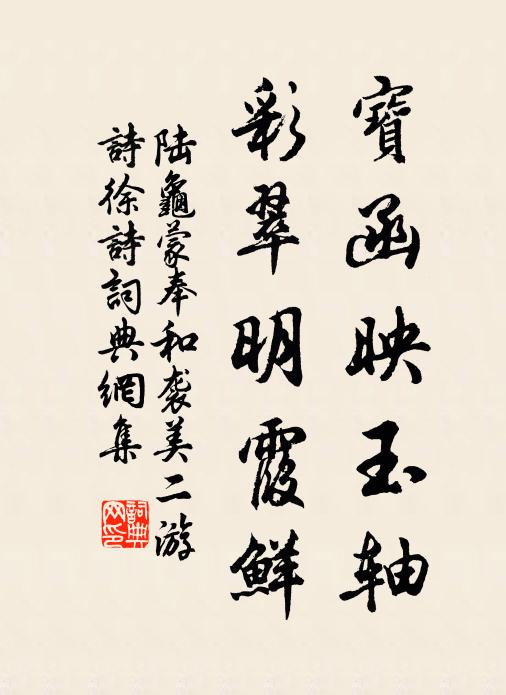 寶函映玉軸
彩翠明霞鮮
陸龜蒙奉和袭美二游
詩徐詩詞典網集
詞典网印